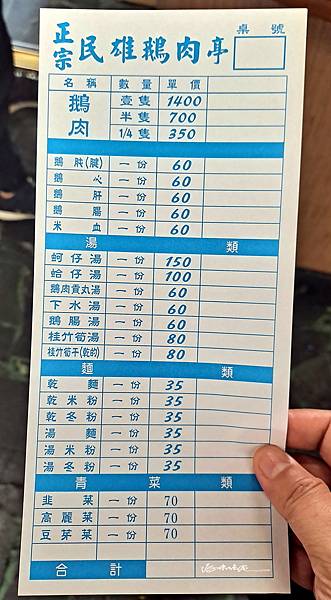 正宗民雄鵝肉亭
桌號
名稱 數量 單價
鵝肉 壹隻 1400
半隻 700
1/4隻 350
鵝肫(腱) 一份 60
鵝心 一份 60
鵝肝 一份 60
鵝腸 一份 60
米血 一份 60
湯類
蚵仔湯 一份 150
蛤仔湯 一份 100
鵝肉貢丸湯 一份 60
下水湯 一份 60
鵝腸湯 一份 60
桂竹筍湯 一份 80
桂竹筍干(乾的) 一份 80
麵類
乾麵 一份 35
乾米粉 一份 35
乾冬粉 一份 35
湯麵 一份 35
湯米粉 一份 35
湯冬粉 一份 35
青菜類
韭菜 一份 70
高麗菜 一份 70
豆芽菜 一份 70
合計